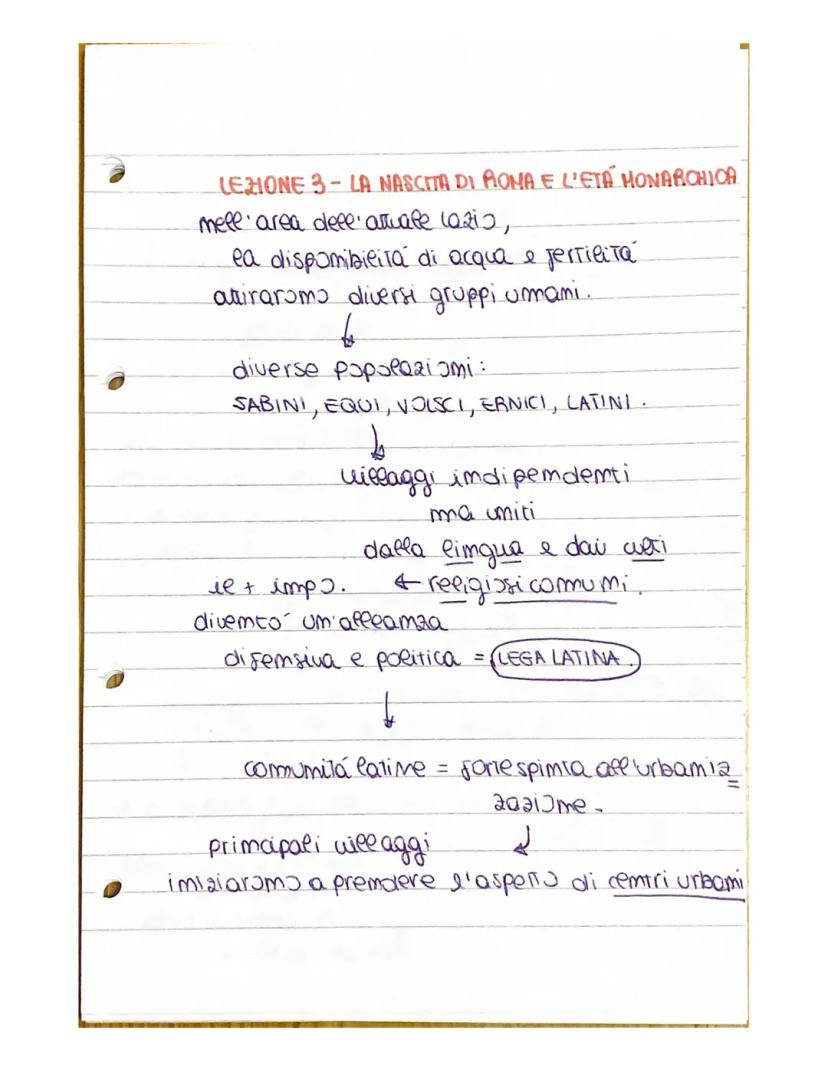 LEZIONE 3 - LA NASCITA DI ROMA E L'ETÁ MONARCHICA
nell'area dell'attuale lazio,
la disponibilitá di acqua e fertilitá
attirarono diversi gruppi umani.
↓
diverse popolazioni:
SABINI, EQUI, VOLSCI, ERNICI, LATINI.
↓
villaggi indipendenti
ma uniti
dalla lingua e dai culti
il + impo. ← religiosi comuni.
diventó un'alleanza
difensiva e politica = LEGA LATINA.
↓
comunitá latine = forte spinta all'urbaniz=
zazione.
principali villaggi ↓
iniziarono a prendere l'aspetto di centri urbani